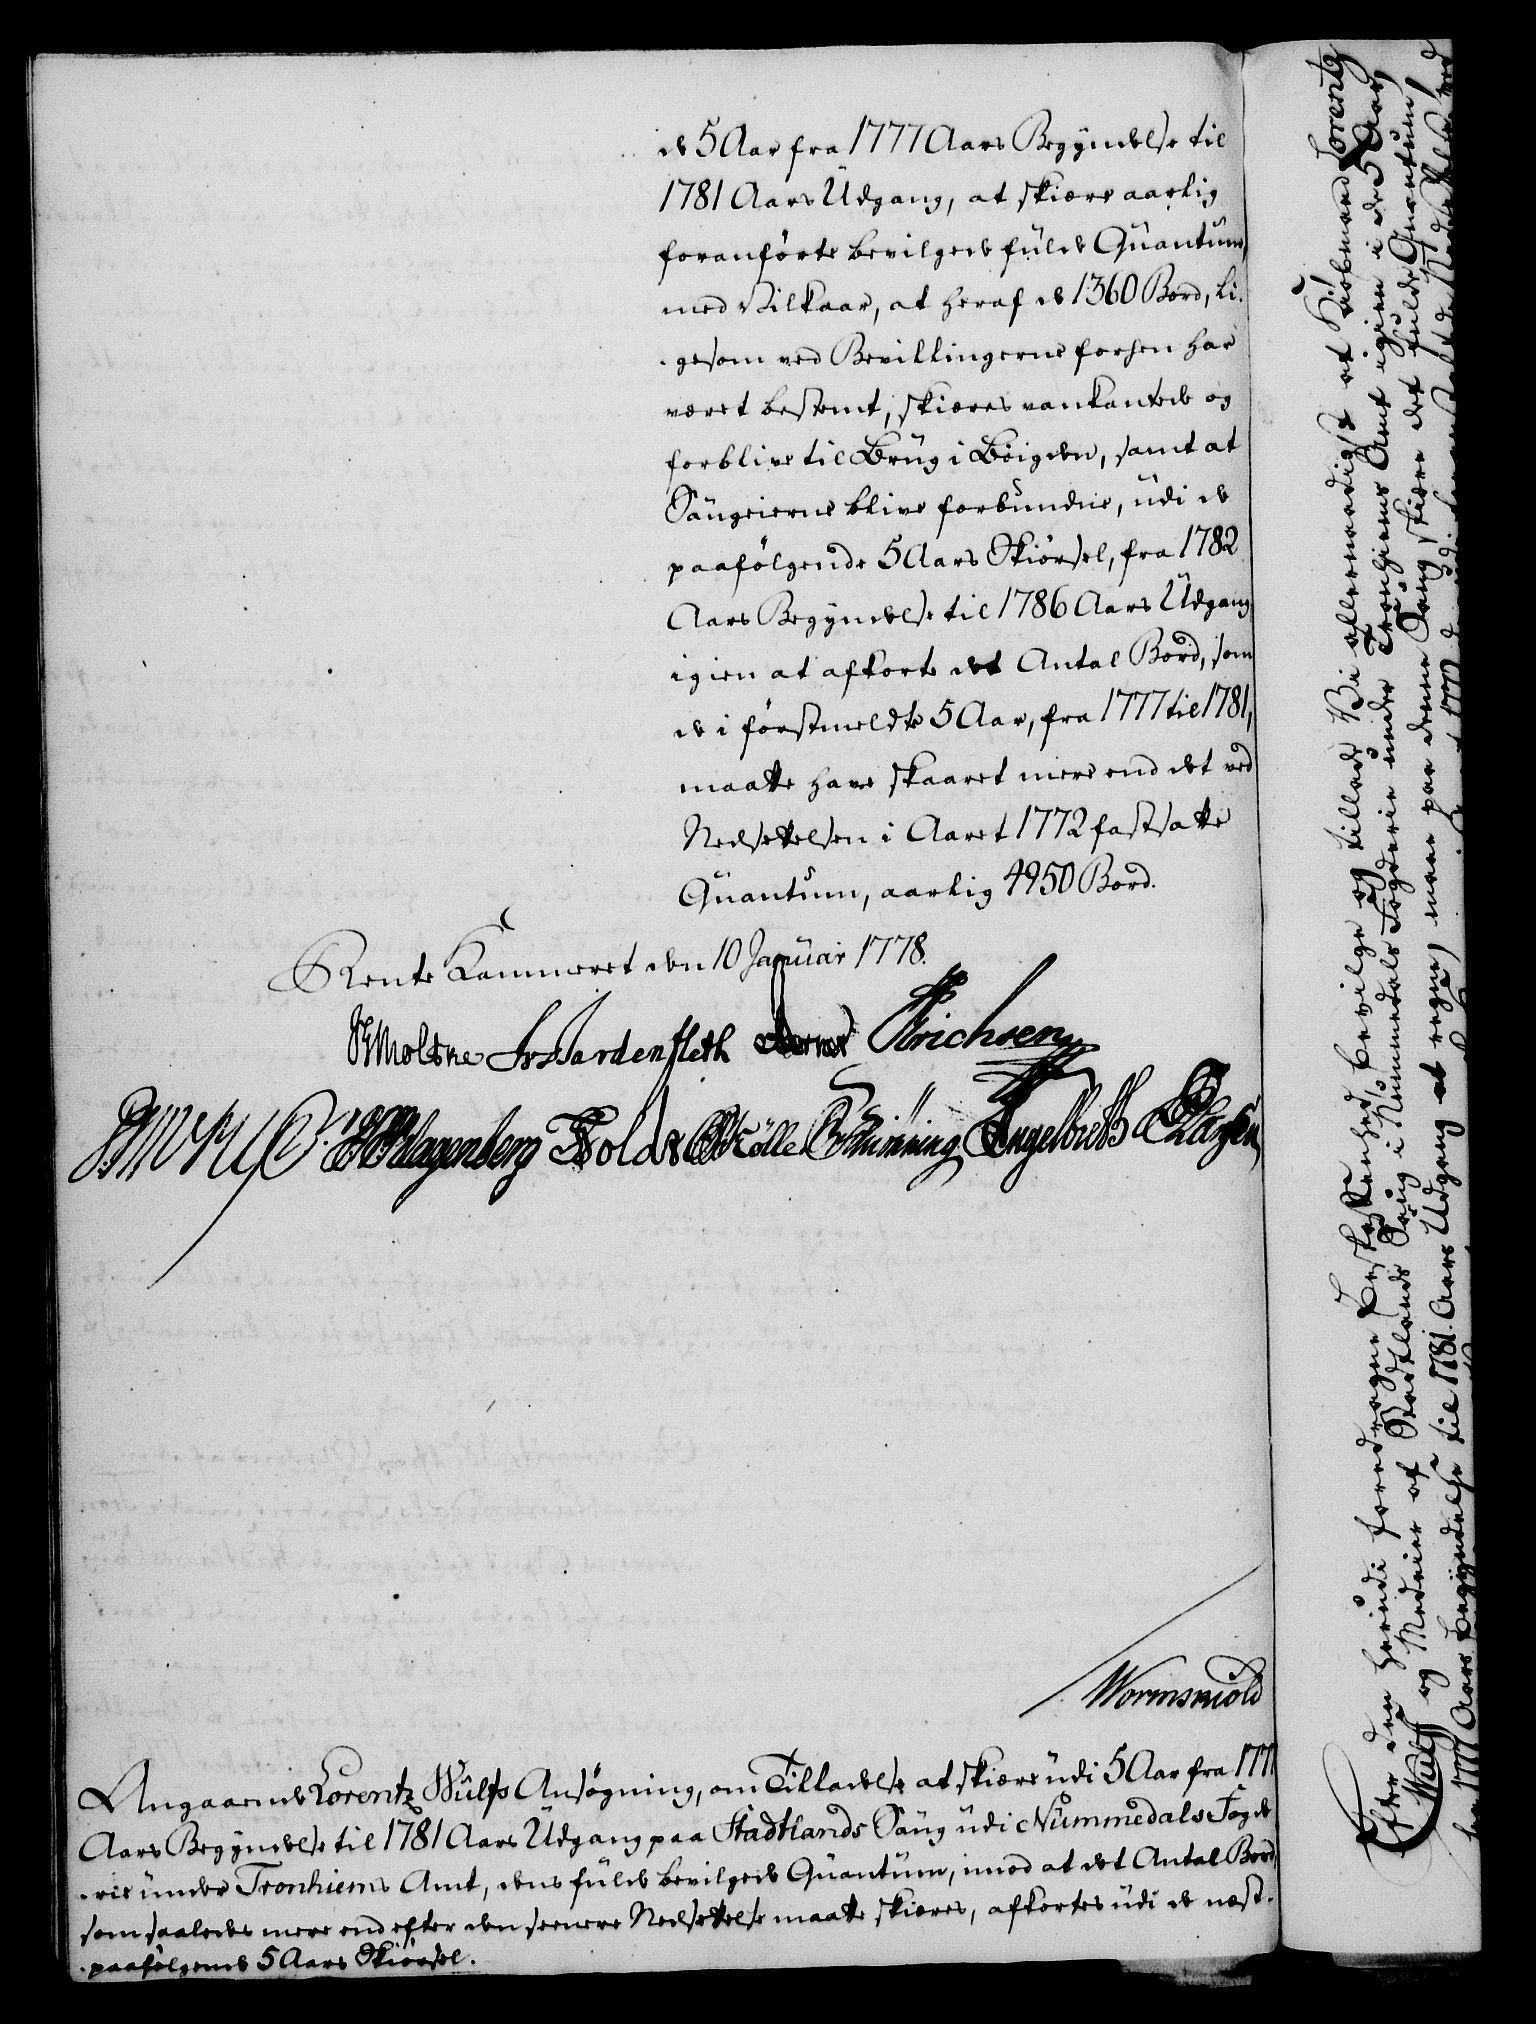 de 5 Aar fra 1777 Aars Begyndelse til
1781 Aars Udgang, at skiære aarlig
foranførte bevilgede fulde Quantum,
med Vilkaar, at heraf de 1360 Bord, li-
gesom ved Bevillingerne forhen har
været bestemt, skiæres vankantede og
forblive til Brug i Bøigden, samt at
Saugeierne blive forbundne, udi de
paafølgende 5 Aars Skiørsel, fra 1782
Aars Begyndelse til 1786 Aars Udgang
igien at afkorte det Antal Bord, som
de i førstmeldte 5 Aar, fra 1777 til 1781,
maatte have skaaret mere end det ved
Nedsettelsen i Aaret 1772 fastsatte
Quantum, aarlig 4950 Bord.
Rente Kammeret den 10 Januar 1778.
Moltke Fr Wardenfleth Berner Erichsen
Klagenberg Holdt Mølle Engelbreth Clausen
Wormskiold
Angaaende Lorentz Wulfs Ansøgning, om Tilladelse at skiære udi 5 Aar fra 1777
Aars Begyndelse til 1781 Aars Udgang paa Stadtlands Saug udi Nummedals Fogde-
rie under Tronhiems Amt, dens fulde bevilgede Quantum, imod at det Antal Bord,
som saaledes mere end efter den seenere Nedsettelse maatte skiæres, afkortes udi de næst-
paafølgende 5 Aars Skiørsel.
Efter den herudi foredragne Beskaffenhed, bevilge og tillade Vi allernaadigst at Kiøbmand Lorentz
Wulff og Medeier af Stadtlands Saug i Nummedals Fogderie under Tronhiems Amt igien i de 5 Aar,
fra 1777 Aars Begyndelse til 1781. Aars Udgang at regne, maae paa denne Saug skiære det fulde Quantum